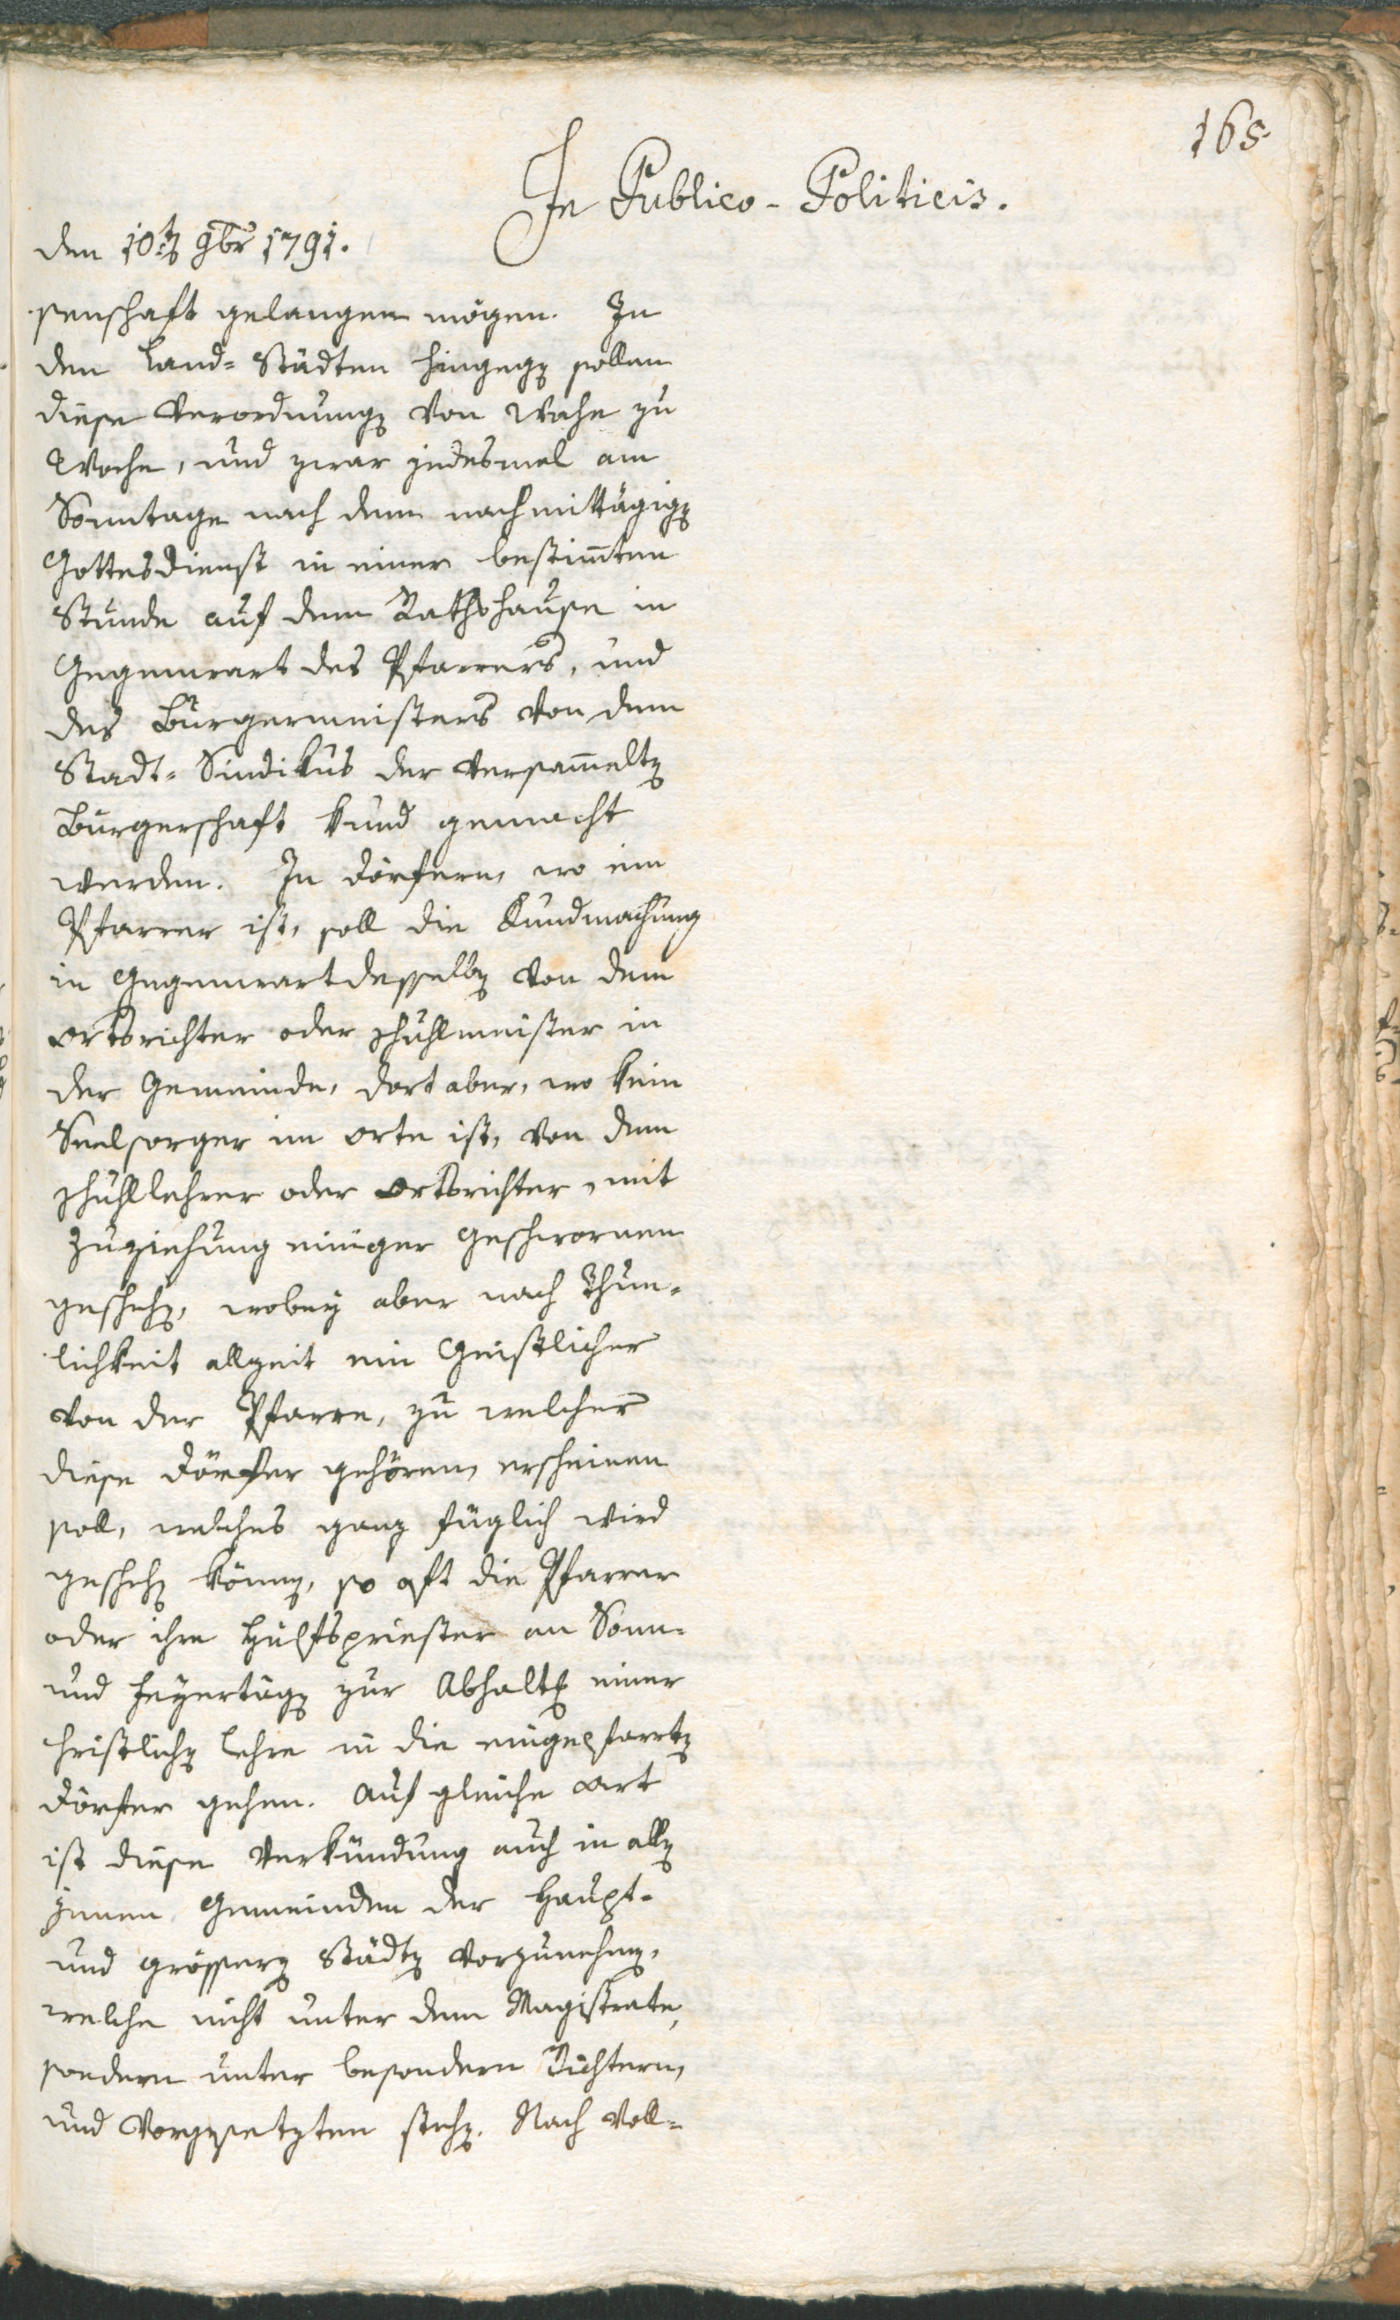 165
In Publico-Politicis.
den 10ten 9br 1791.
senschaft gelangen mögen. In
den Land- Städten hingegen sollen
diese Verordnungen von Woche zu
Woche, und zwar jedesmal am
Sonntage nach dem nachmittägigen
Gottesdienst in einer bestim̅ten
Stunde auf dem Rathshause in
Gegenwart des Pfarrers, und
des Bürgermeisters von dem
Stadt- Sindikus der versam̅elten
Bürgerschaft kund gemacht
werden. In Dörfern, wo ein
Pfarrer ist, soll die Kundmachung
in Gegenwart desselben von dem
Ortsrichter oder Schullmeister in
der Gemeinde, dort aber, wo kein
Seelsorger im Orte ist, von dem
Schullehrer oder Ortsrichter, mit
Zuziehung einiger Geschwornen
geschehen, wobey aber nach Thun-
lichkeit allzeit ein Geistlicher
von der Pfarre, zu welcher
diese Dörfer gehören, erscheinen
soll, welches ganz füglich wird
geschehen können, so oft die Pfarrer
oder ihre Hülfspriester an Sonn-
und Feyertägen zur Abhaltung einer
christlichen Lehre in die eingepfarrten
Dörfer gehen. Auf gleiche Art
ist diese Verkündung auch in allen
jenen Gemeinden der Haupt-
und grösseren Städten vorzunehmen,
welche nicht unter dem Magistrate,
sondern unter besondern Richtern,
und Vorgesetzten stehen. Nach Voll-